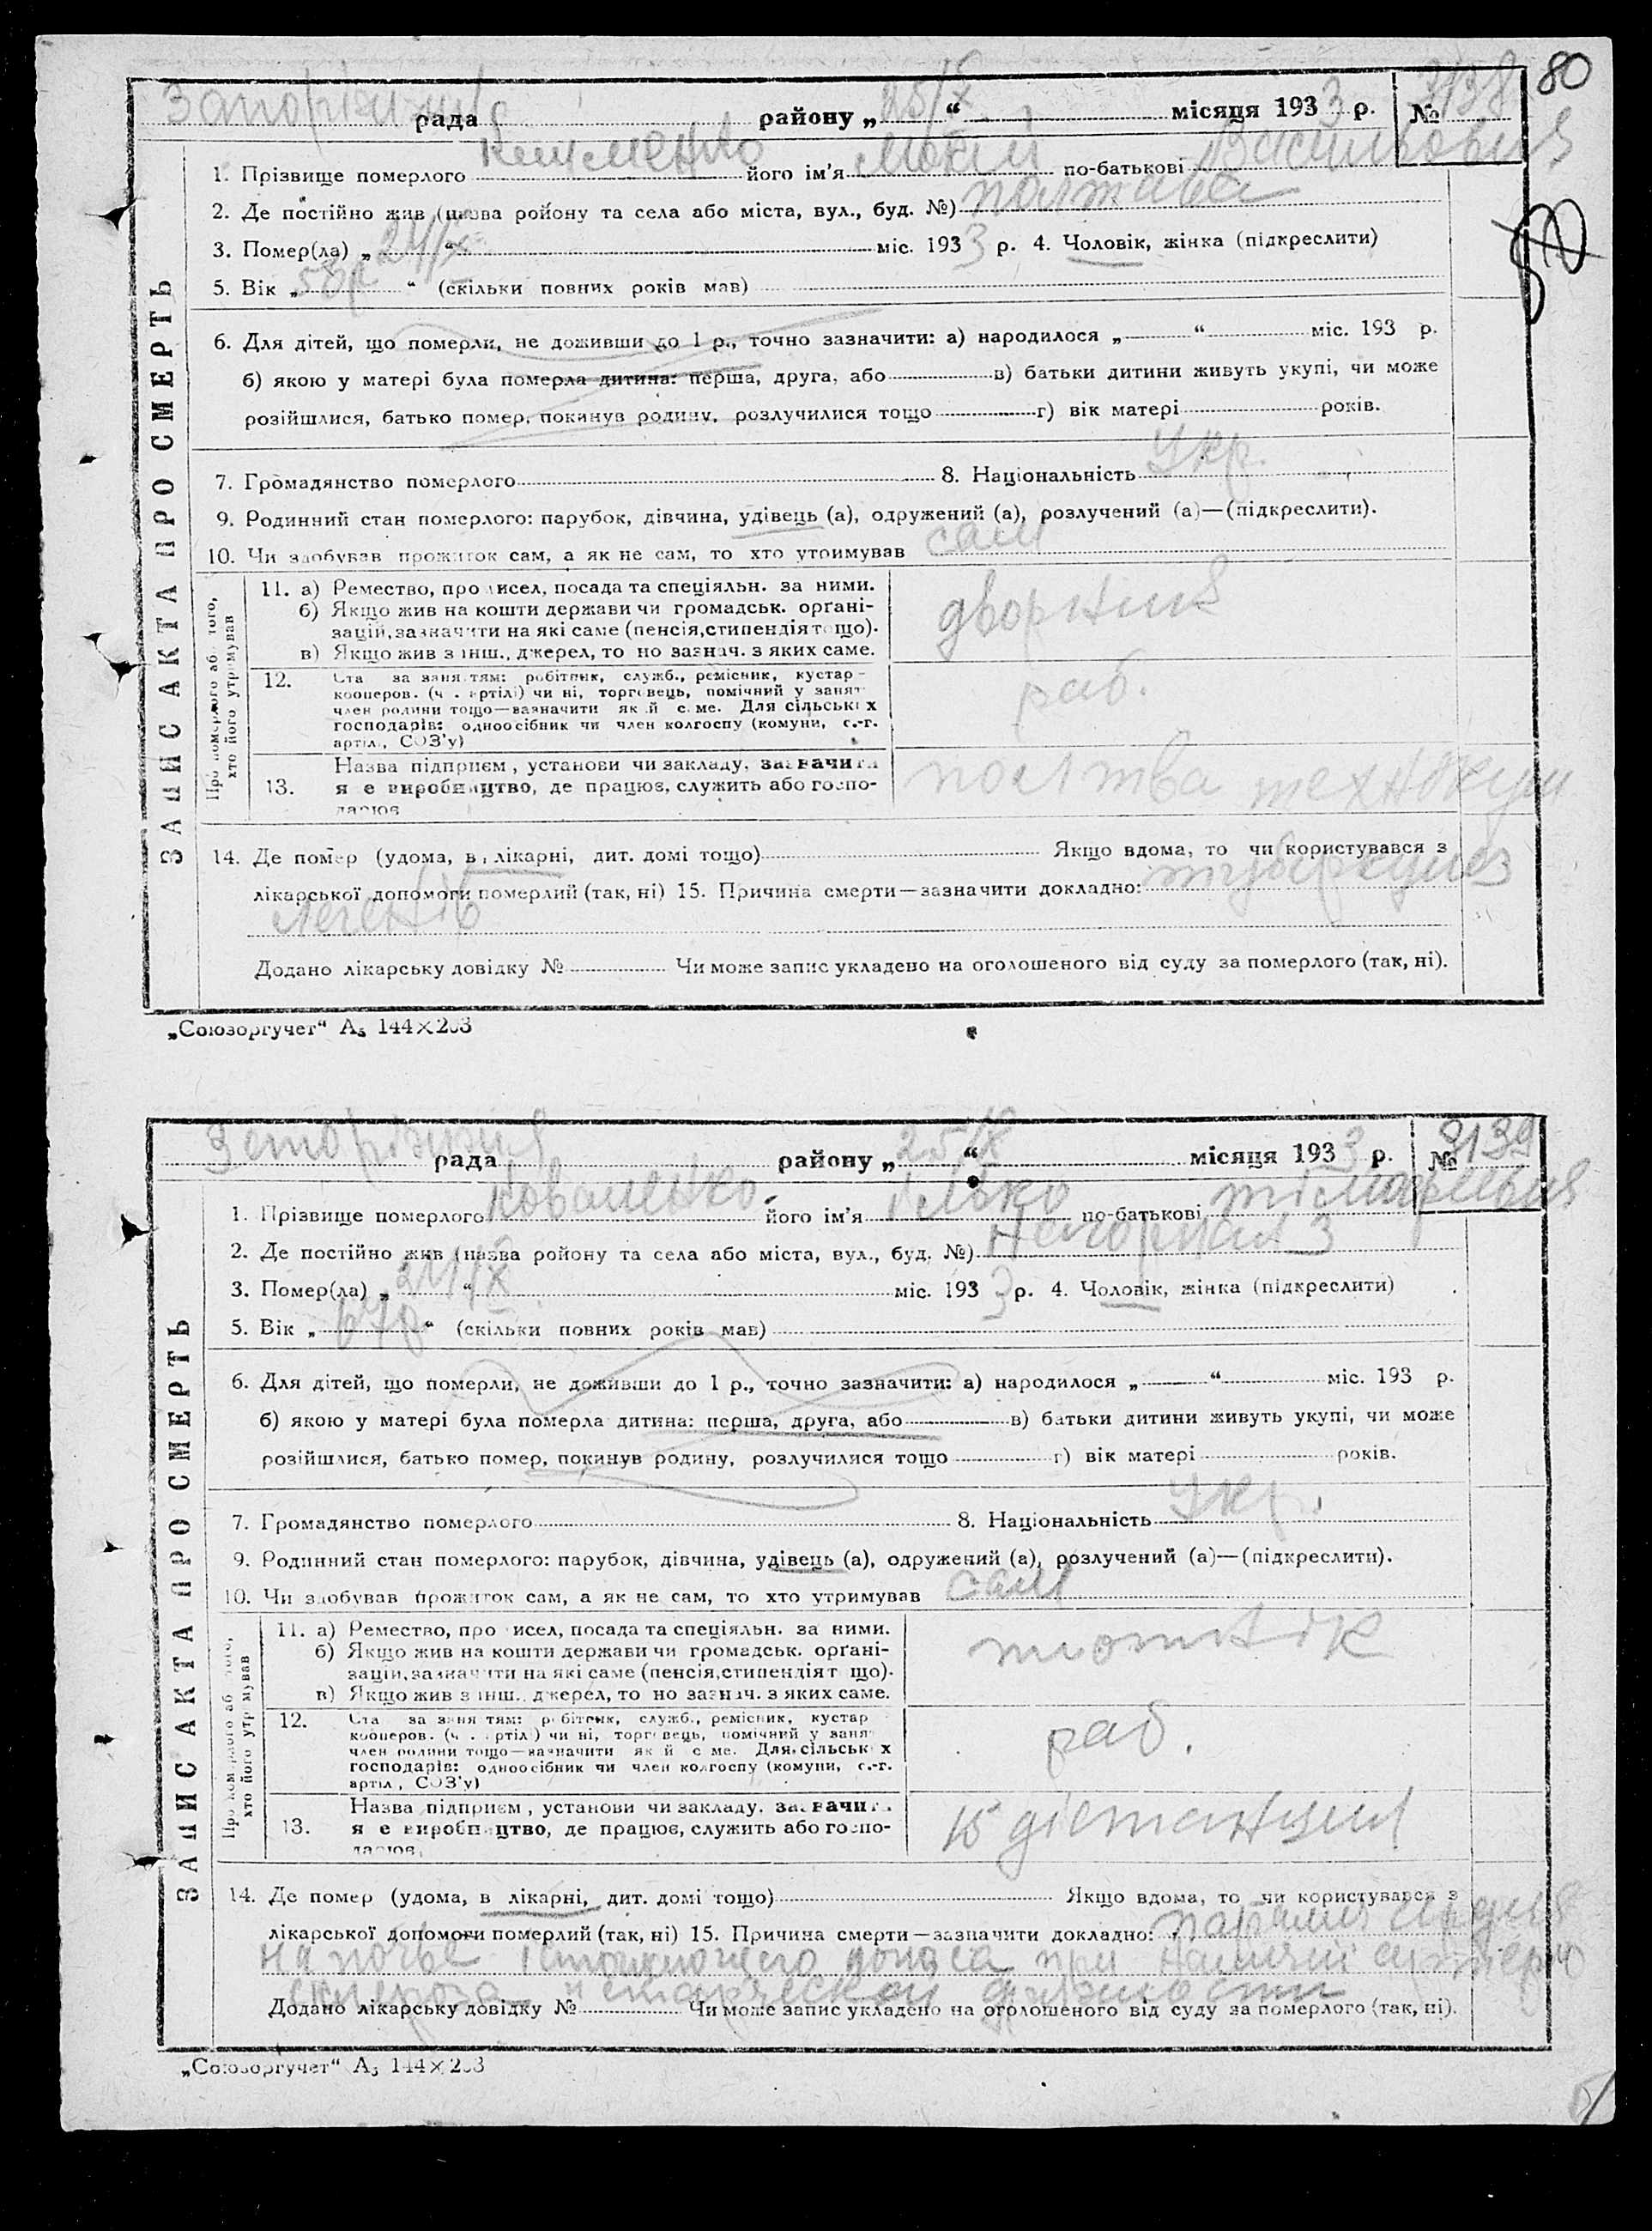 80
рада района „25/X“ місяця 1933 р. № 3138
ЗАПИС АКТА ПРО СМЕРТЬ
1. Прізвище померлого його ім'я Мокій по-батькові Васильович
2. Де постійно жив (назва ройону та села або міста, вул., буд. №)
3. Помер(ла) „24/X“ міс. 1933 р. 4. Чоловік, жінка (підкреслити)
5. Вік „ “ (скільки повних років мав)
6. Для дітей, що померли, не доживши до 1 р., точно зазначити: а) народилося „ “ міс. 193 р.
б) якою у матері була померла дитина: перша, друга, або в) батьки дитини живуть укупі, чи може
розійшлися, батько помер, покинув родину, розлучилися тощо г) вік матері років.
7. Громадянство померлого 8. Національність Укр.
9. Родинний стан померлого: парубок, дівчина, удівець (а), одружений (а), розлучений (а)—(підкреслити).
10. Чи здобував прожиток сам, а як не сам, то хто утримував сам
Про померлого або того, хто його утримував
11. а) Ремество, промисел, посада та спеціяльн. за ними.
б) Якщо жив на кошти держави чи громадськ. орґані-
зацій, зазначити на які саме (пенсія, стипендія тощо).
в) Якщо жив з інш., джерел, то но зазнач. з яких саме.
дворник
12. Ста за заняттям: робітник, служб., ремісник, кустар-
кооперов. (ч. артілі) чи ні, торговець, помічний у занят
член родини тощо—зазначити який саме. Для сільських
господарів: одноосібник чи член колгоспу (комуни, с.-г.
артіл., СОЗ'у)
раб.
13. Назва підприєм, установи чи закладу, зазначити
яке виробництво, де працює, служить або госпо-
дарює
14. Де помер (удома, в лікарні, дит. домі тощо) Якщо вдома, то чи користувався з
лікарської допомоги померлий (так, ні) 15. Причина смерти—зазначити докладно: туберкульоз
легенів
Додано лікарську довідку № Чи може запис укладено на оголошеного від суду за померлого (так, ні).
„Союзоргучет“ А₅ 144×203
рада району „25/X“ місяця 1933 р. № 3139
ЗАПИС АКТА ПРО СМЕРТЬ
1. Прізвище померлого Коваленко його ім'я по-батькові
2. Де постійно жив (назва ройону та села або міста, вул., буд. №) Нагорная 3
3. Помер(ла) „24/X“ міс. 1933 р. 4. Чоловік, жінка (підкреслити)
5. Вік „67р“ (скільки повних років мав)
6. Для дітей, що померли, не доживши до 1 р., точно зазначити: а) народилося „ “ міс. 193 р.
б) якою у матері була померла дитина: перша, друга, або в) батьки дитини живуть укупі, чи може
розійшлися, батько помер, покинув родину, розлучилися тощо г) вік матері років.
7. Громадянство померлого 8. Національність Укр.
9. Родинний стан померлого: парубок, дівчина, удівець (а), одружений (а), розлучений (а)—(підкреслити).
10. Чи здобував прожиток сам, а як не сам, то хто утримував сам
Про померлого або того, хто його утримував
11. а) Ремество, промисел, посада та спеціяльн. за ними.
б) Якщо жив на кошти держави чи громадськ. орґані-
зацій, зазначити на які саме (пенсія, стипендія тощо).
в) Якщо жив з інш., джерел, то но зазнач. з яких саме.
12. Ста за заняттям: робітник, служб., ремісник, кустар
кооперов. (ч. артіл) чи ні, торговець, помічний у занят
член родини тощо—зазначити який саме. Для сільських
господарів: одноосібник чи член колгоспу (комуни, с.-г.
артіл, СОЗ'у)
раб.
13. Назва підприєм, установи чи закладу, зазначити
яке виробництво, де працює, служить або госпо-
дарює,
15 дістанция
14. Де помер (удома, в лікарні, дит. домі тощо) Якщо вдома, то чи користувався з
лікарської допомоги померлий (так, ні) 15. Причина смерти—зазначити докладно:
на почве истощающего поноса при наличии
склероза и старческой дряхлости
Додано лікарську довідку № Чи може запис укладено на оголошеного від суду за померлого (так, ні).
„Союзоргучет“ А₅ 144×203